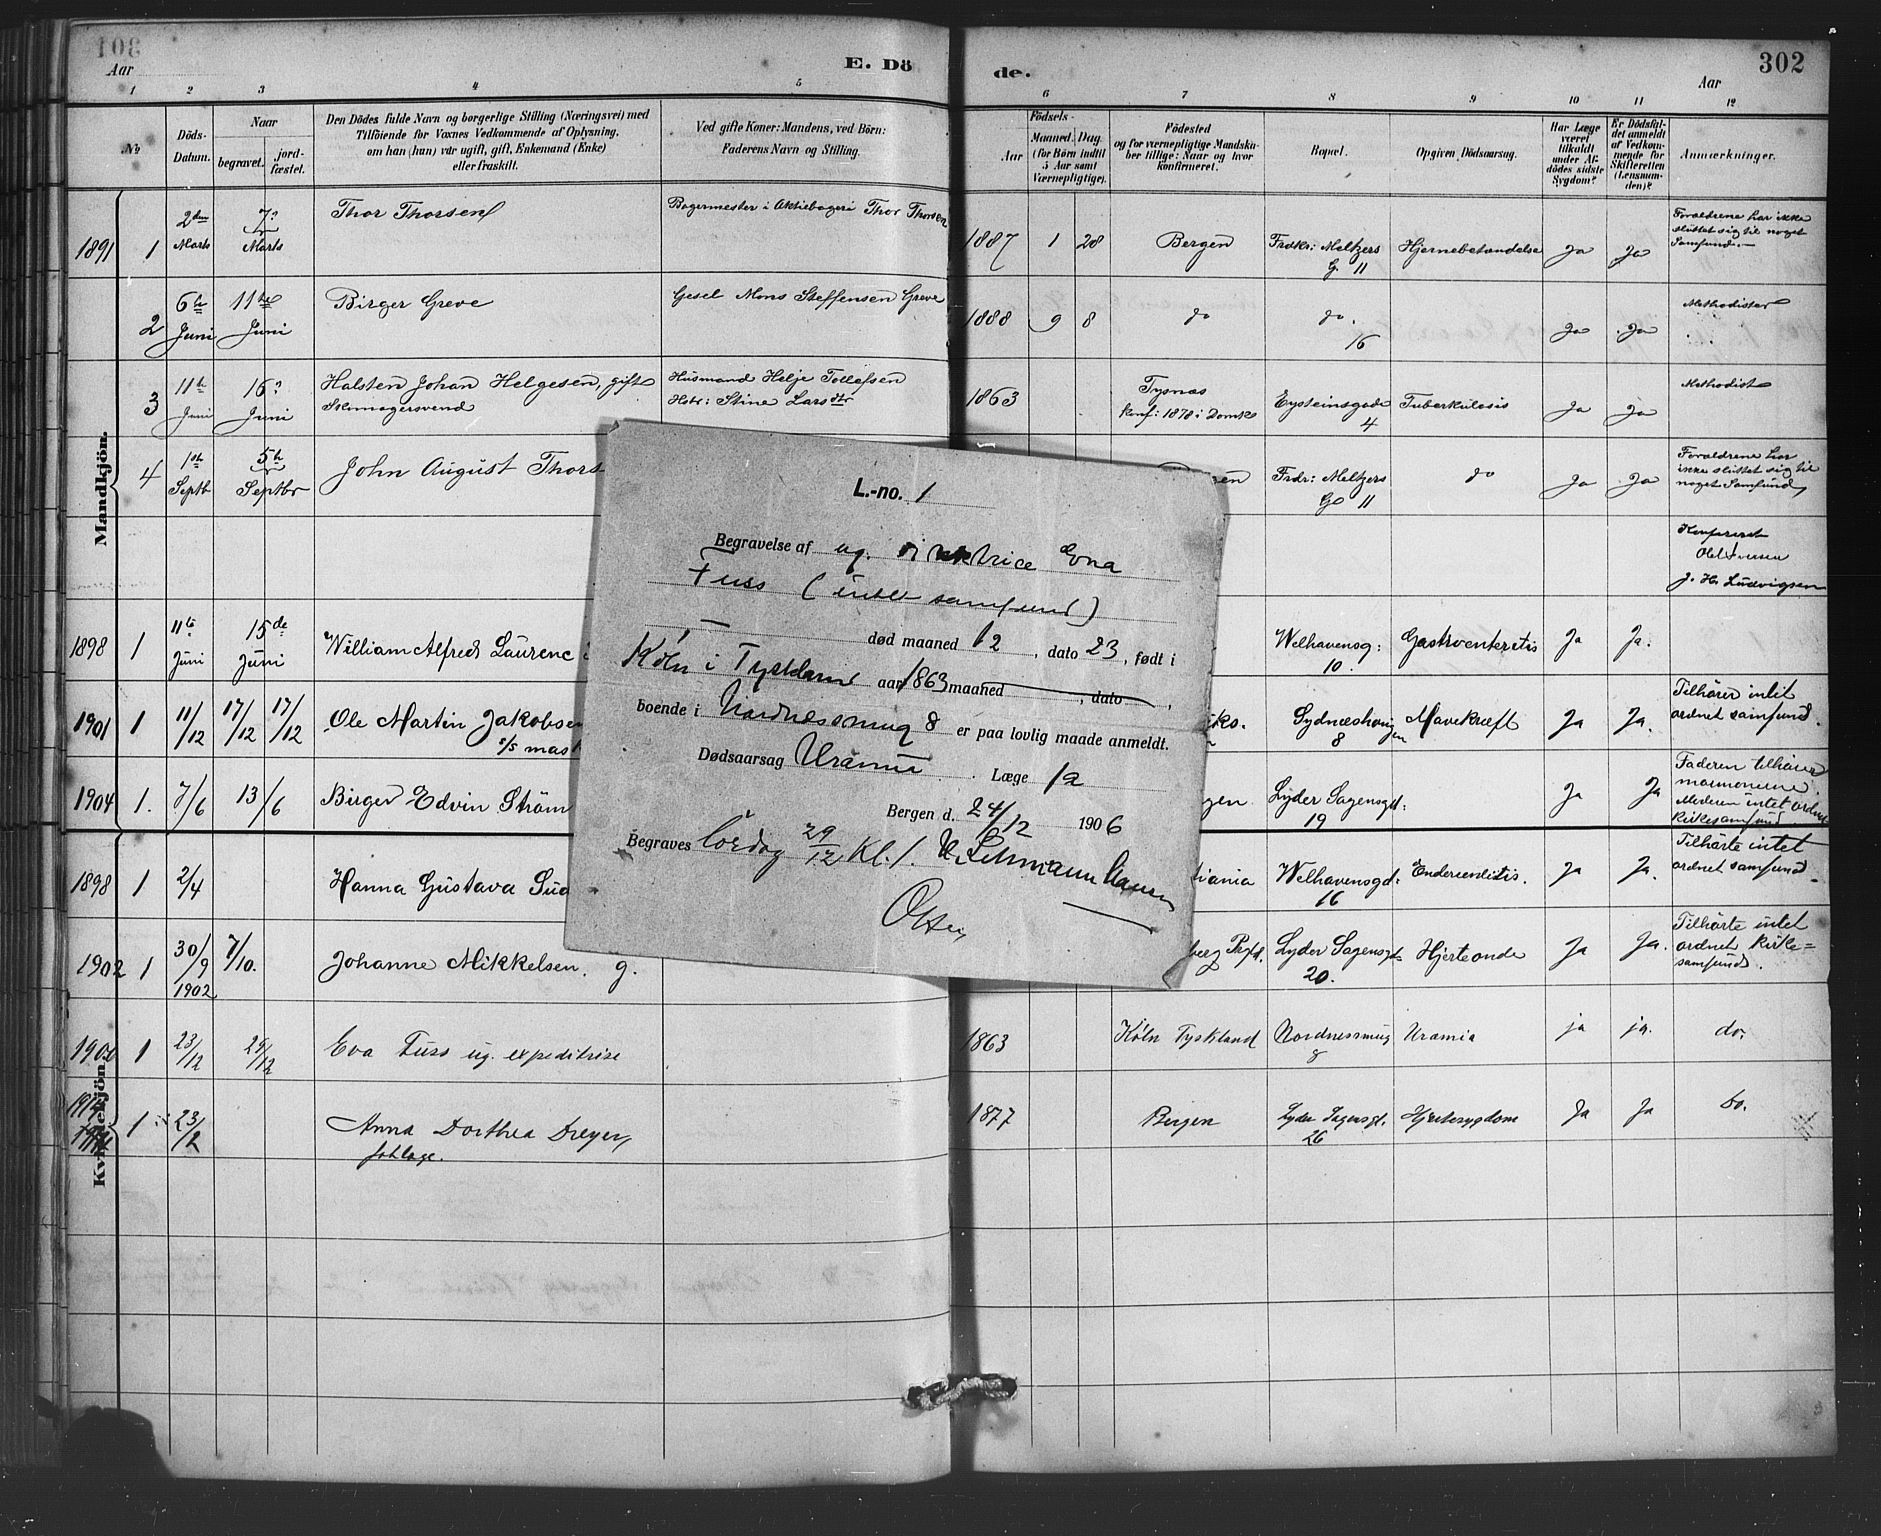 108
302
Aar
E. Dö
de.
Aar
1 2 3 4 5 6 7 8 9 10 11 12
No
Döds-
Datum.
Naar
begravet.
jord-
fæstet.
Den Dödes fulde Navn og borgerlige Stilling (Næringsvei) med
Tilföiende for Voxnes Vedkommende af Oplysning,
om han (hun) var ugift, gift, Enkemand (Enke)
eller fraskilt.
Ved gifte Koner: Mandens, ved Börn:
Faderens Navn og Stilling.
Födsels-
Aar
Maaned.
Dag
(for Börn indtil
5 Aar samt
Værnepligtige).
Födested
og for værnepligtige Mandska-
ber tillige: Naar og hvor
konfirmeret.
Bopæl.
Opgiven Dödsaarsag.
Har Læge
været
tilkaldt
under Af-
dödes sidste
Sygdom?
Er Dödsfal-
det anmeldt
af Vedkom-
mende for
Skifteretten
(Lensman-
den)?
Anmærkninger.
Mandkjön.
1891 1 2den Marts 7. Marts Thor Thorsen Bagermester i Aktiebageri Thor Thorsen 1887 1 28 Bergen Fredkr: Meltzers G. 11 Hjernebetændelse Ja Ja Forældrene har ikke
sluttet sig til noget
Samfund.
2 6te Juni 11te Juni Birger Greve Gesel Mons Steffensen Greve 1888 9 8 do do. 16 Ja Ja Methodister
3 11te Juni 16. Juni Halsten Johan Helgesen, gift
Skomagersvend
Husmand Helje Tollefsen
Hstr: Stine Larsdtr
1863 Tysnæs
Konf: 1878 i Domk
Eysteinsgade 4 Tuberkulosis Ja Ja Methodist
4 1ste Septb 5te Septbr John August Thors
Frdr: Meltzers G 11 do Ja Ja Forældrene har
ikke sluttet sig til
noget Samfund,
Konfereret
J. Hr Ludvigsen
1898 1 11te Juni 15de Juni William Alfred Laurenc Welhavensg: 10. Gastroenteretis Ja Ja.
1901 1 11/12 17/12 17/12 Ole Martin Jakobsen
s/s mas
Sydneshougen 8 Mavekræft Ja Ja. Tilhører intet
ordnet samfund.
1904 1. 7/6 13/6 Birger Edvin Ström gen Lyder Sagensgd: 19 Ja Ja Faderen tilhører
mormonerne.
Moderen intet ordnet
kirkesamfund
Kvindekjön.
1898 1 2/4 Hanna Gustava tiania Welhavensgd: 16 Ja Ja. Tilhörte intet
ordnet samfund.
1902 1 30/9 1902 7/10. Johanne Mikkelsen. g. berg Lyder Sagensgd= 20. Hjerteonde Ja Ja. Tilhörte intet
ordnet kirke=
samfund.
1906 1 23/12 29/12 Eva Fuss ug. expeditrise 1863 Köln Tyskland Nordnessmug 8 Uræmia ja ja. do.
1914 1 23/2 Anna Dorthea Dreyer, 1877 Bergen Lyder Sagensgt. 26 Hjertesygdom Ja Ja Do.
L.-no. 1
Begravelse af ug. Eva
Fuss (intet samfund)
— død maaned 12, dato 23, født i
Köln i Tyskland aar 1863 maaned , dato ,
boende i Nordnessmug 8 er paa lovlig maade anmeldt.
Dødsaarsag Uræmi . Læge ja
Bergen d. 24/12 1906
Begraves lördag 29/12 Kl. 1.